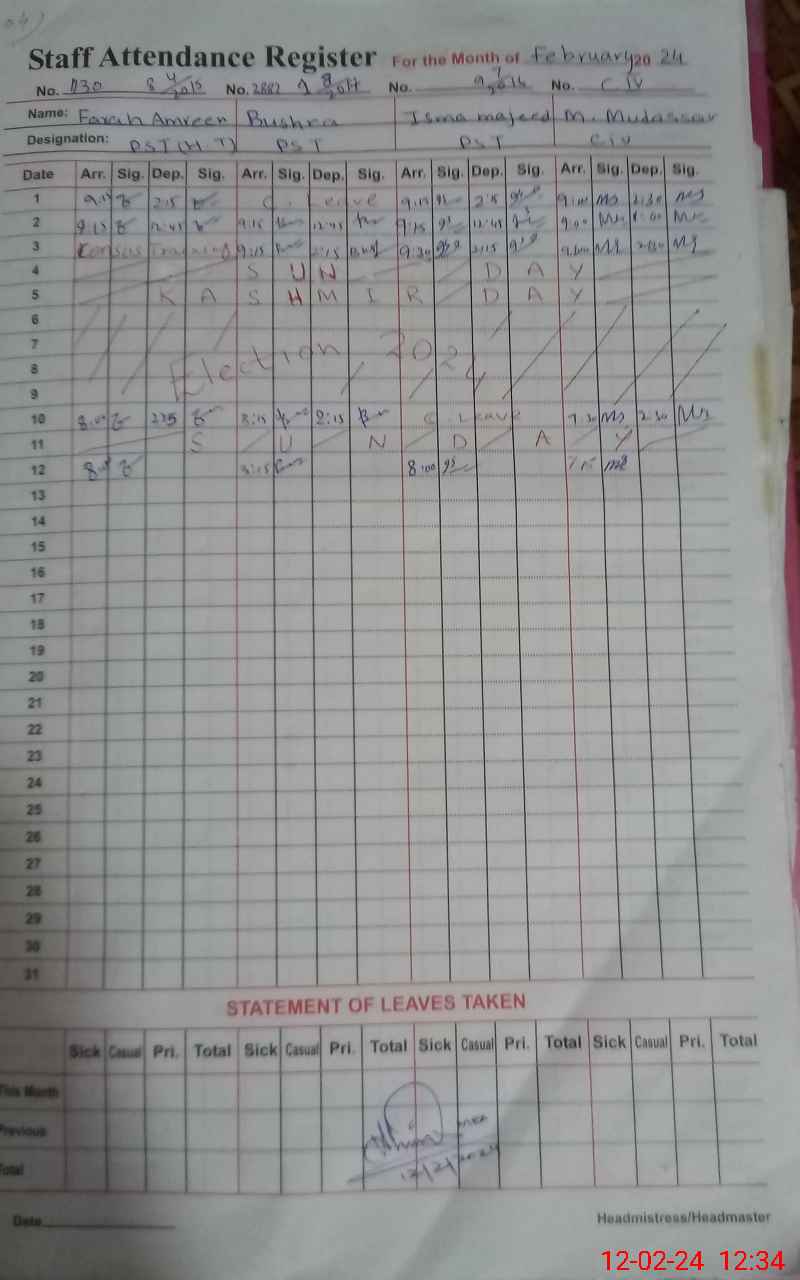 Staff Attendance Register For the Month of February 2024
No. 1130 8 4/2015 No. 2882 1 8/2017 No. 9 7/2016 No. C IV
Name: Farah Amreen Bushra Isma majeed M. Mudassar
Designation: PST (H T) PST PST Civ
Date Arr. Sig. Dep. Sig. Arr. Sig. Dep. Sig. Arr. Sig. Dep. Sig. Arr. Sig. Dep. Sig.
1 9:15 2:15 C. Leave 9:15 2:15 9:00 Ms 2:30 Ms
2 9:15 12:45 9:15 12:45 9:15 12:45 9:00 Ms 1:00 Ms
3 Training 9:15 2:15 9:20 2:15 Ms 2:30 Ms
4 S U N D A Y
5 K A S H M I R D A Y
6
7
8 Election 2024
9
10 8:00 2:15 8:15 2:15 C. Leave 7:30 Ms 2:30 Ms
11 S U N D A Y
12 8:15 8:00 7:15 Ms
13
14
15
16
17
18
19
20
21
22
23
24
25
26
27
28
29
30
31
STATEMENT OF LEAVES TAKEN
Sick Casual Pri. Total Sick Casual Pri. Total Sick Casual Pri. Total Sick Casual Pri. Total
This Month
Previous
Total
12/2/2024
Date
Headmistress/Headmaster
12-02-24 12:34